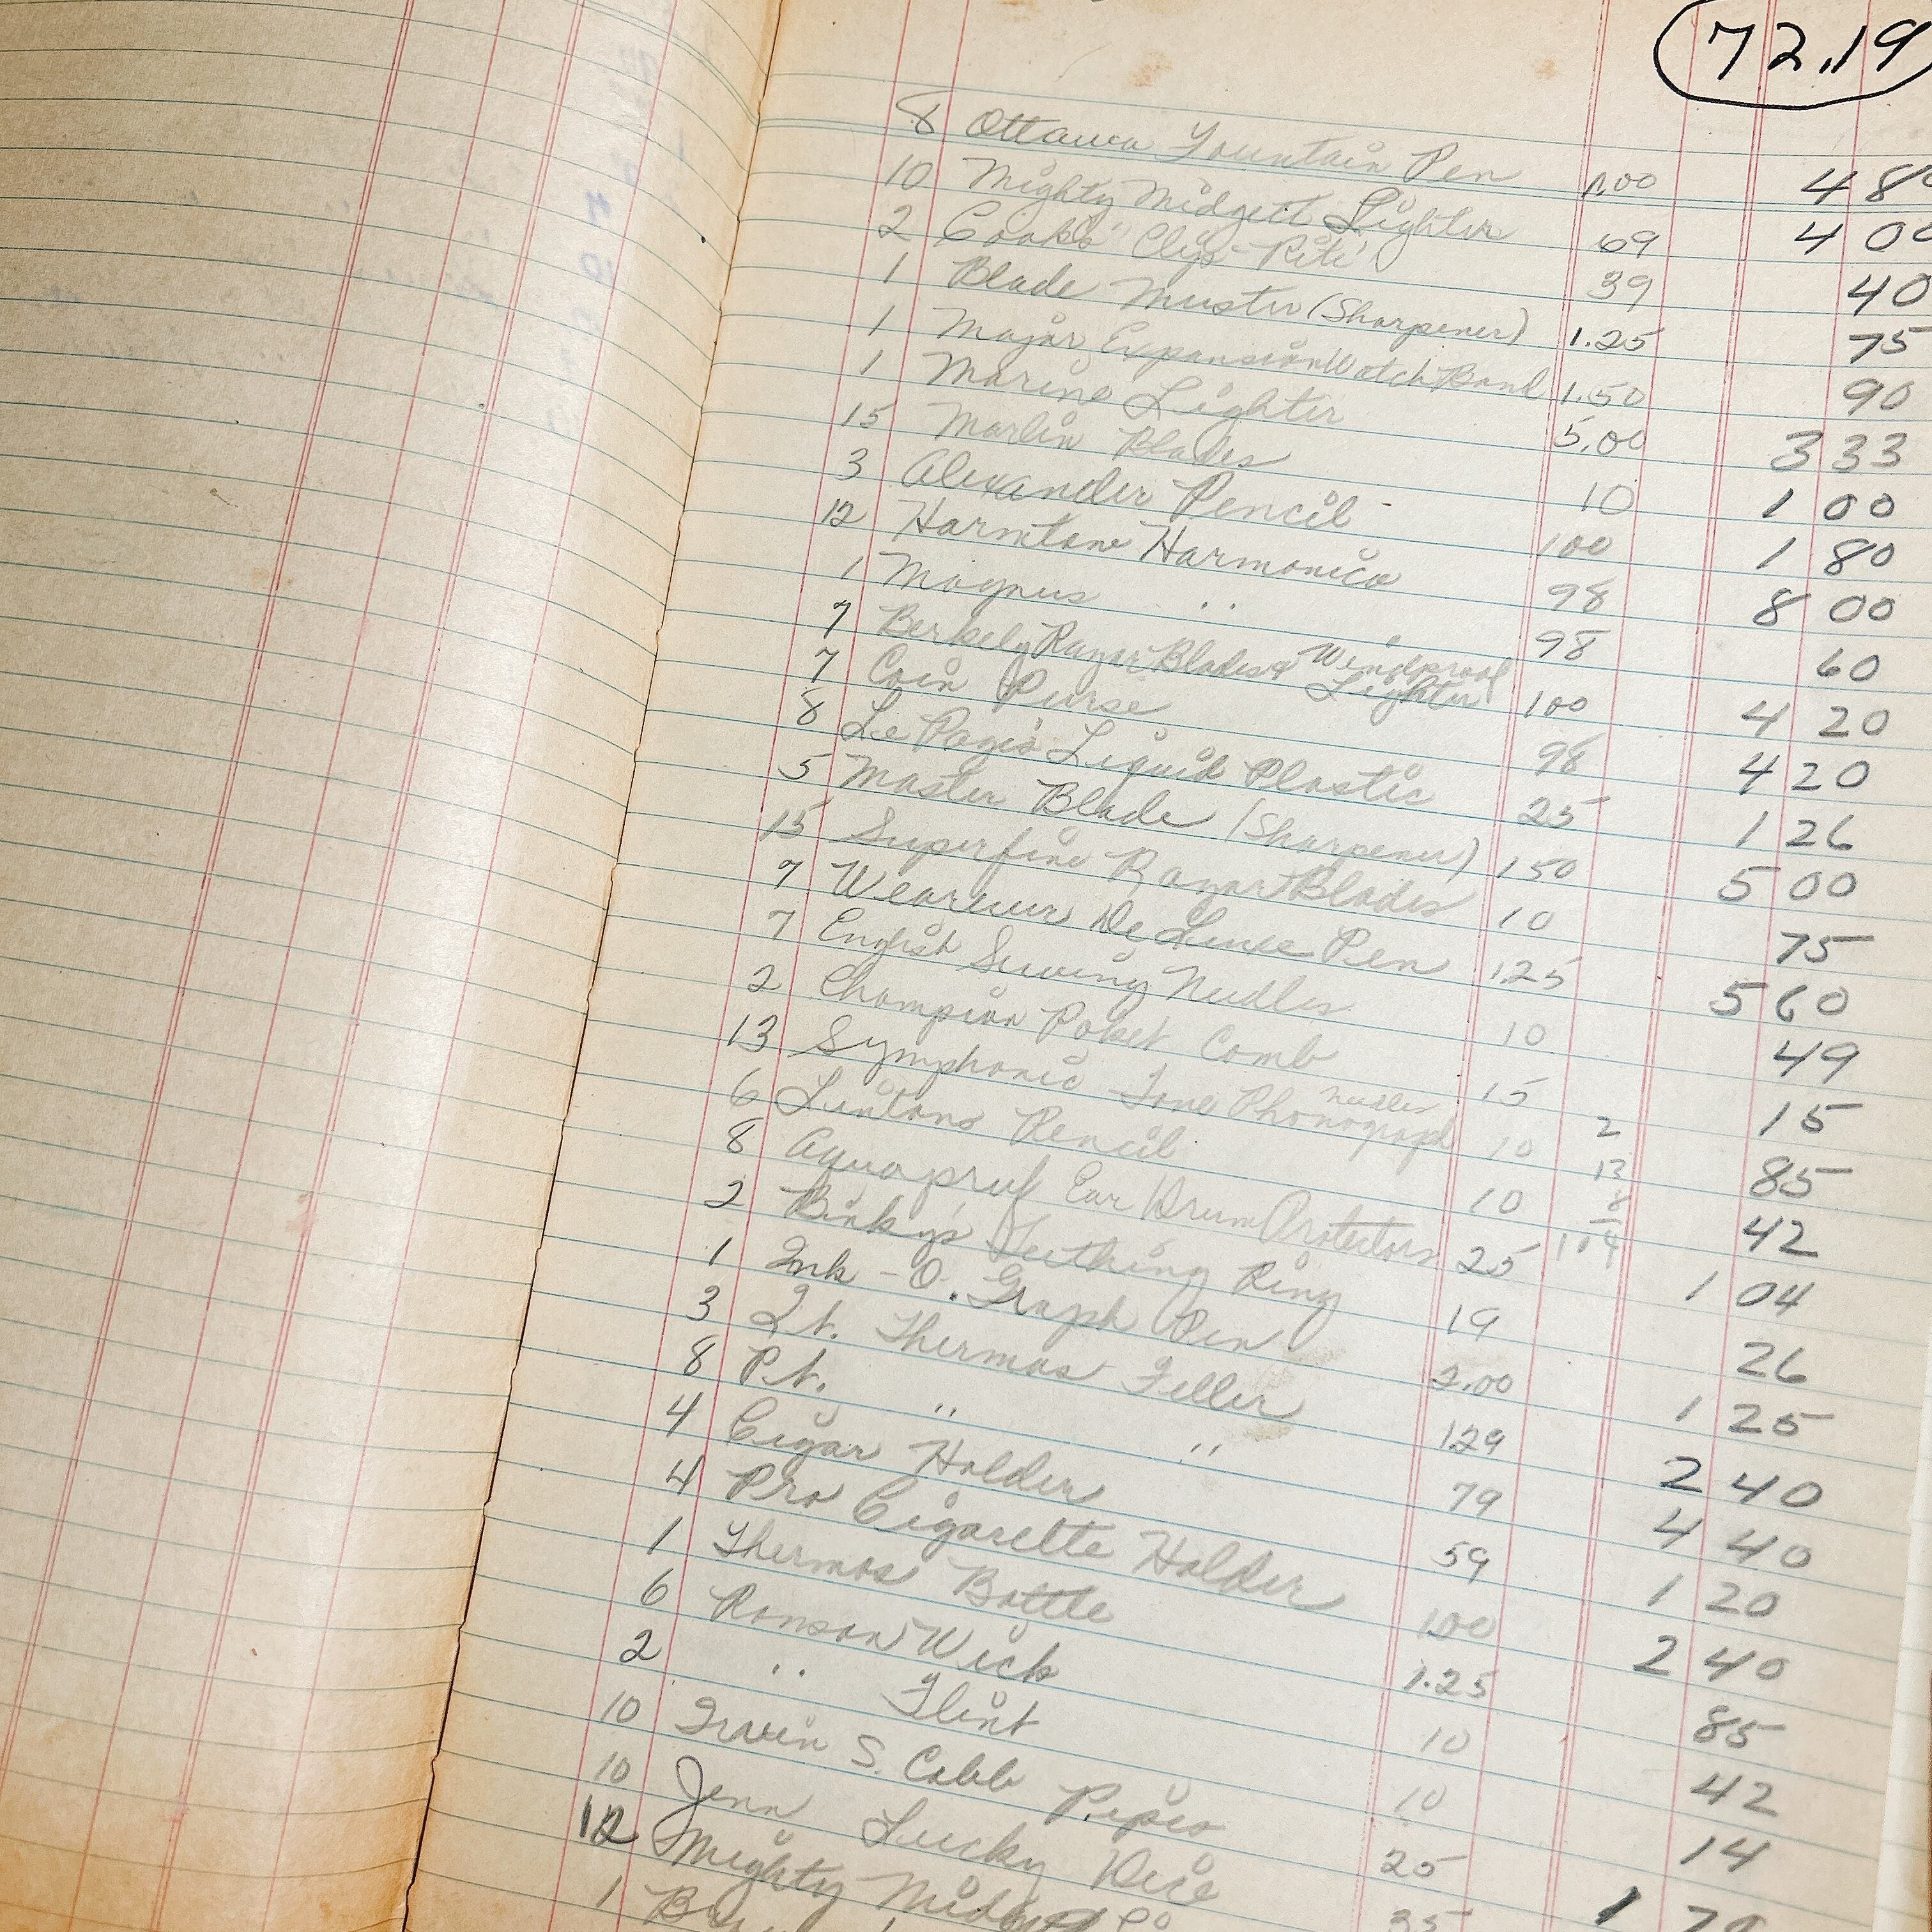 72.19
8 Ottawa Fountain Pen 1.00 4 80
10 Mighty Midgett Lighter 69 4 00
2 Cooks "Clip-Rite" 39 40
1 Blade Muster (Sharpener) 1.25 75
1 Major Expansion Watch Band 1.50 90
1 Marine Lighter 5.00 3 33
15 Marlin Blades 10 1 00
3 Alexander Pencil 100 1 80
12 Harmtone Harmonica 98 8 00
1 Magnus " 98 60
7 Berkely Razor Blades & Windproof Lighter 100 4 20
7 Coin Purse 98 4 20
8 Le Page's Liquid Plastic 25 1 26
5 Master Blade (Sharpener) 150 5 00
15 Superfine Razor Blades 10 75
7 Wearever De Luxe Pen 1.25 5 60
7 English Sewing Needles 10 49
2 Champion Poket Comb 15 15
13 Symphonic Tone Phonograph Needles 10 2 85
6 Lintons Pencil 10 13 42
8 Aquapruf Ear Drum Protectors 25 8 104 1 04
2 Binky's Teething Ring 19 26
1 Ink-O-Graph Pen 2.00 1 25
3 Qt. Thermos Filler 129 2 40
8 Pt. " " 79 4 40
4 Cigar Holder 59 1 20
4 Pro Cigarette Holder 1.00 2 40
1 Thermos Bottle 1.25 85
6 Ronson Wick 10 42
2 " Flint 10 14
10 Irvin S. Cobb Pipes 25 1 70
10 Jenn Lucky Dice 35
12 Mighty Midget
1